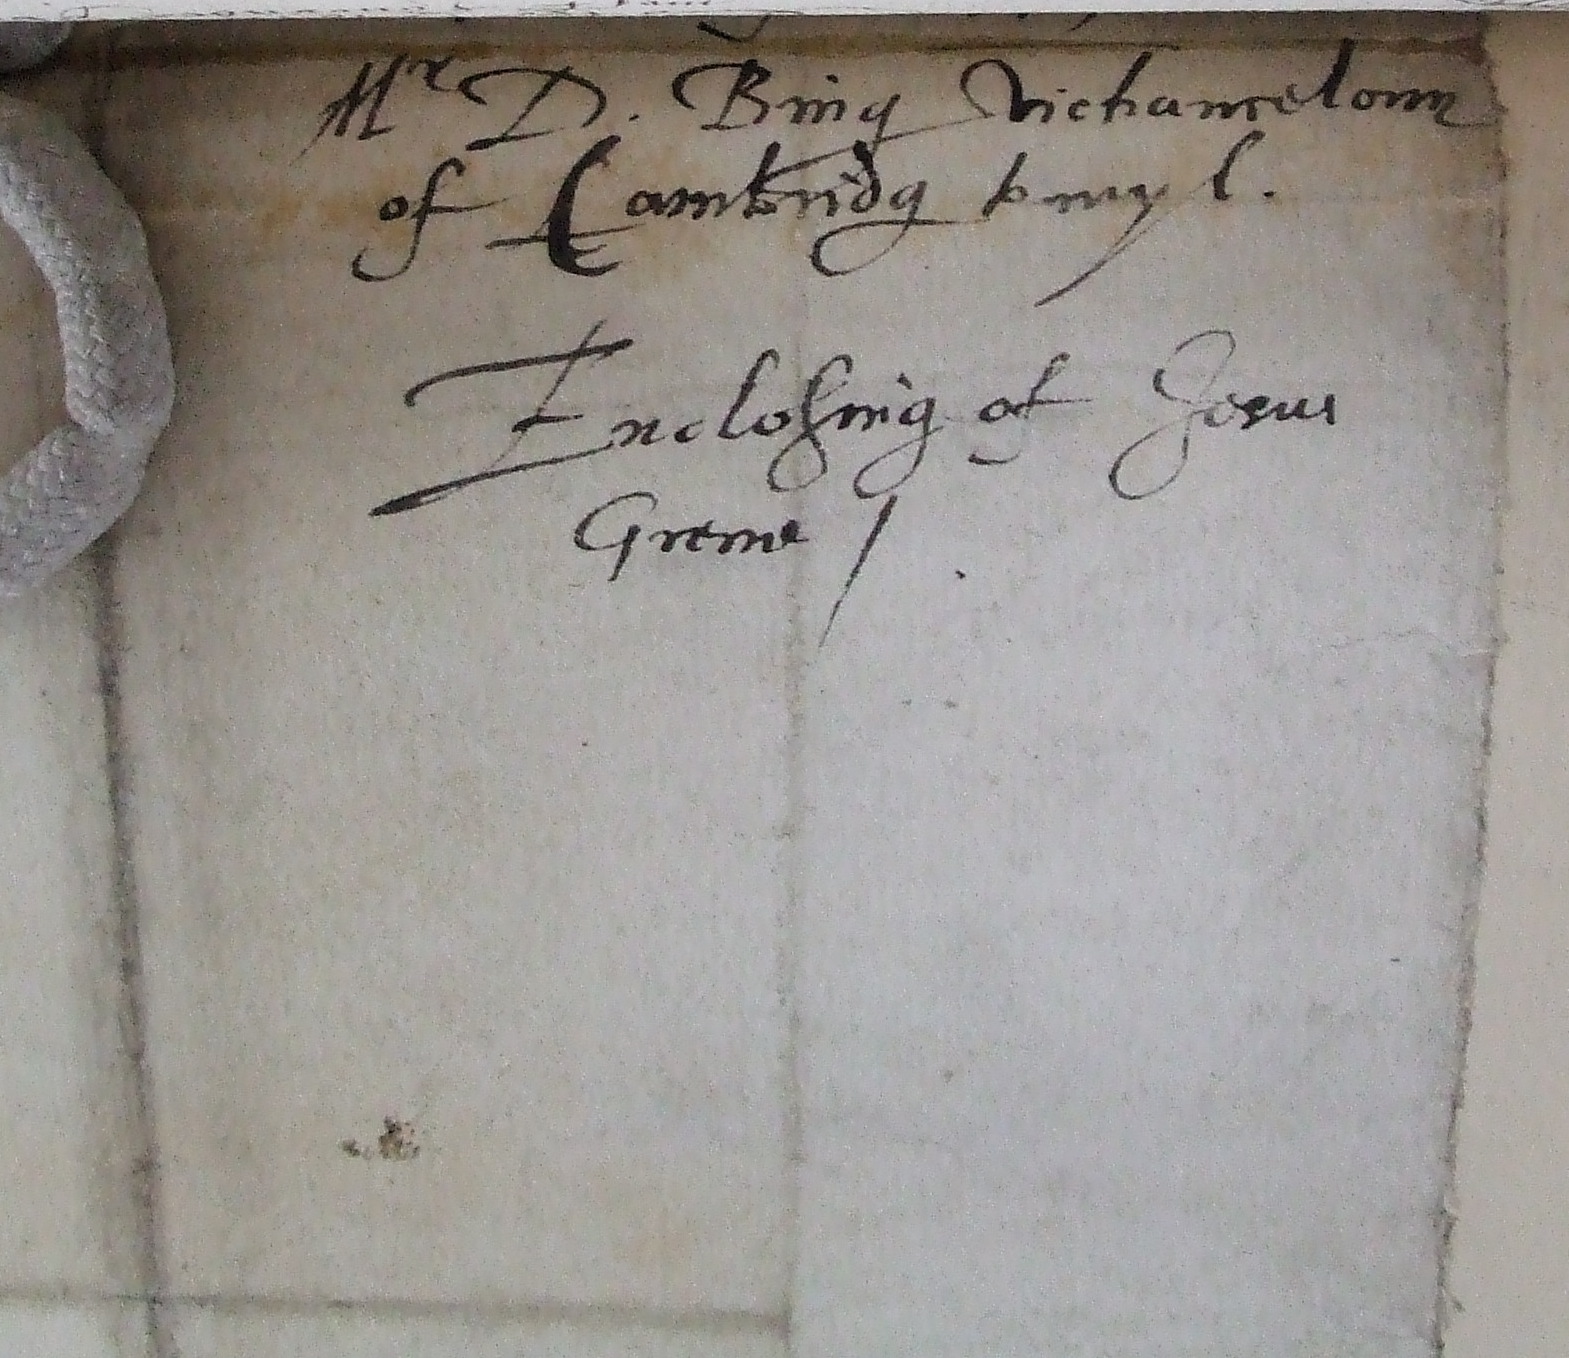 Mr D. Bing Vichancelour
of Cambridg to my l.
Enclosing of Jesus
Grene /.